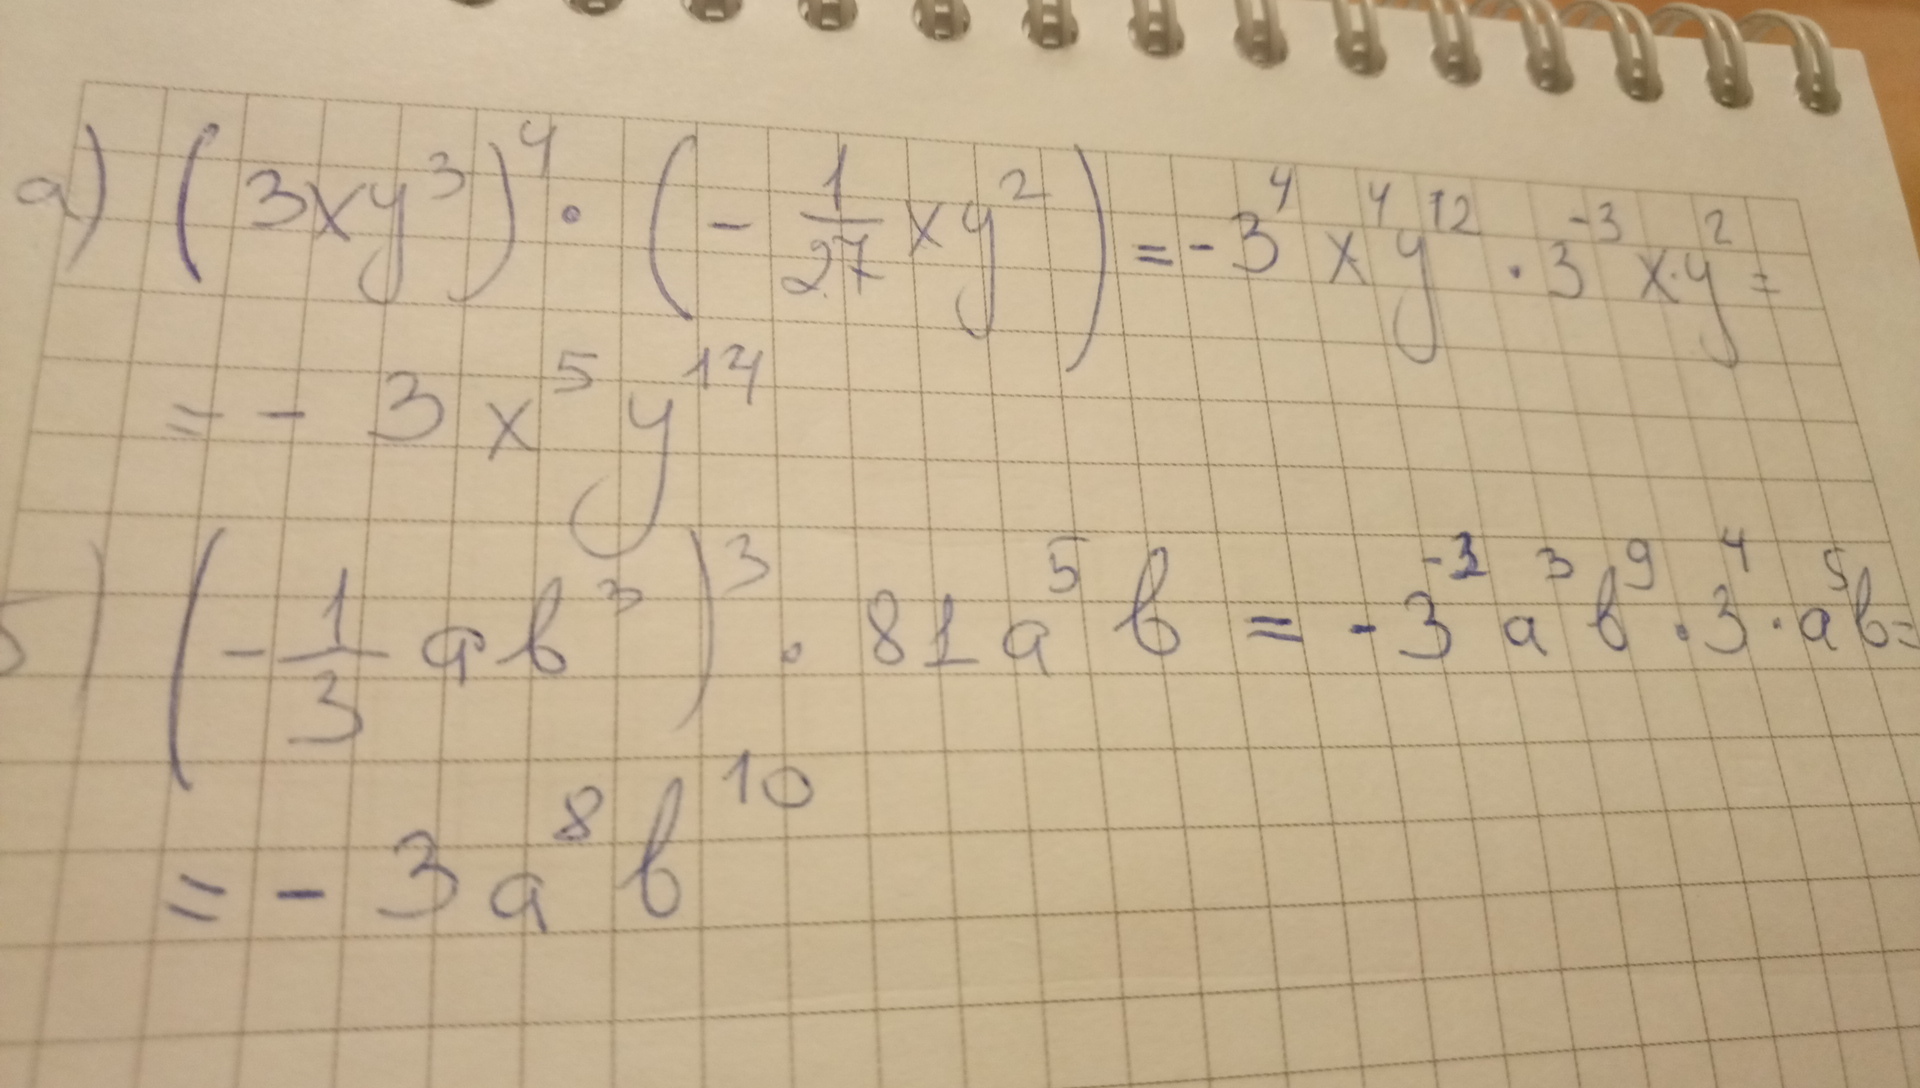 а) (3xy³)⁴ · (- 1/27 xy²) = - 3⁴ x⁴ y¹² · 3⁻³ x·y² =
= - 3 x⁵ y¹⁴
б) (- 1/3 ab³)³ · 81 a⁵ b = - 3⁻³ a³ b⁹ · 3⁴ · a⁵ b =
= - 3 a⁸ b¹⁰